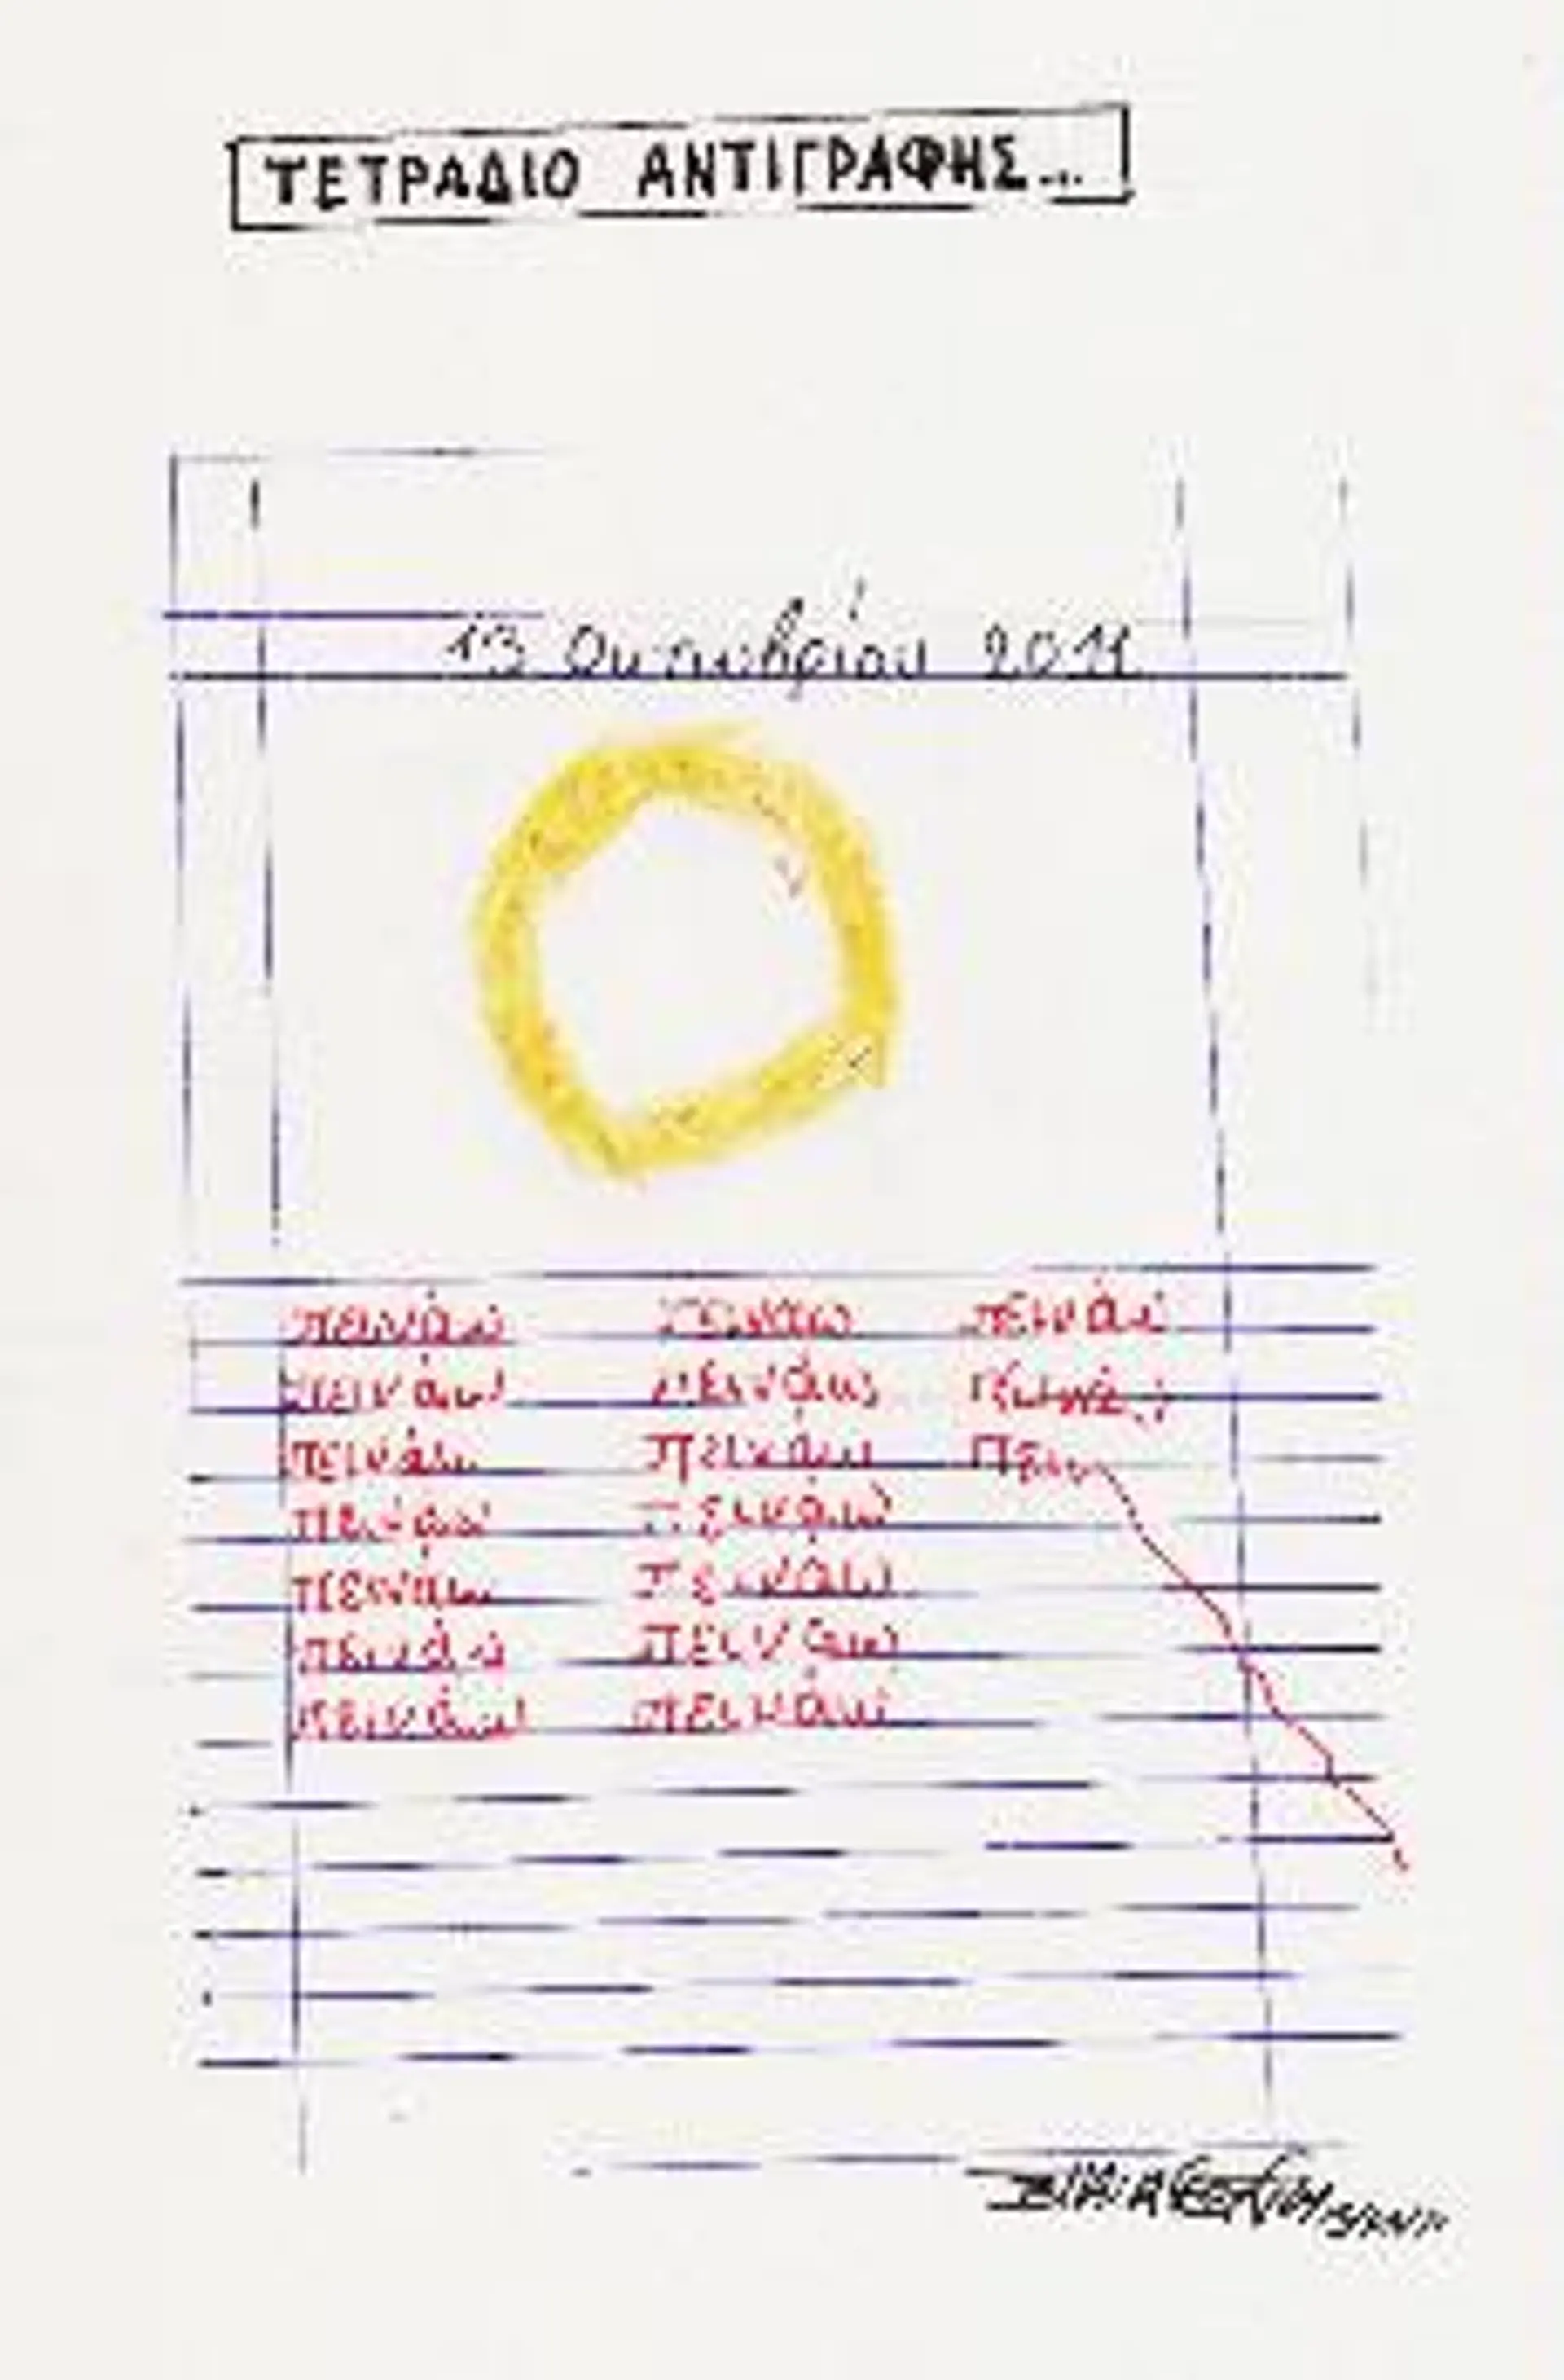 ΤΕΤΡΑΔΙΟ ΑΝΤΙΓΡΑΦΗΣ...
13 Οκτωβρίου 2011
πεινάω πεινάω πεινάω
πεινάω πεινάω πεινάω
πεινάω πεινάω πειν
πεινάω πεινάω
πεινάω πεινάω
πεινάω πεινάω
πεινάω πεινάω